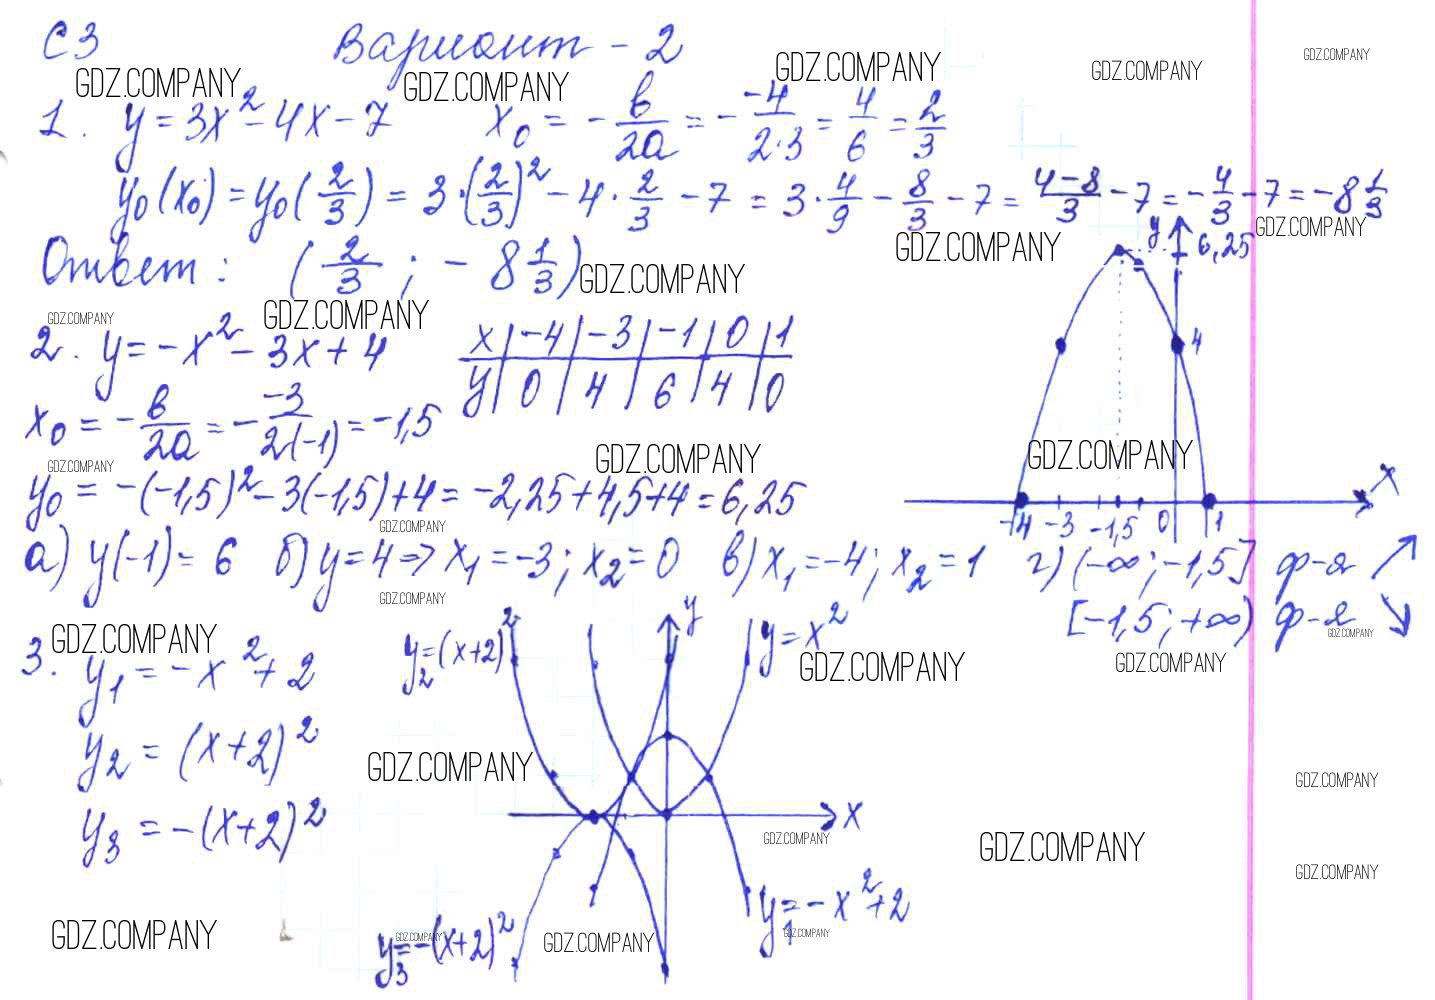 С3 Вариант - 2
GDZ.COMPANY GDZ.COMPANY GDZ.COMPANY GDZ.COMPANY GDZ.COMPANY
1. y = 3x² - 4x - 7 x₀ = - в/2а = - -4/2·3 = 4/6 = 2/3
y₀(x₀) = y₀(2/3) = 3·(2/3)² - 4·2/3 - 7 = 3·4/9 - 8/3 - 7 = 4-8/3 - 7 = - 4/3 - 7 = -8 1/3
Ответ: (2/3; - 8 1/3)
GDZ.COMPANY GDZ.COMPANY GDZ.COMPANY
GDZ.COMPANY GDZ.COMPANY
2. y = -x² - 3x + 4
x | -4 | -3 | -1 | 0 | 1
y | 0 | 4 | 6 | 4 | 0
x₀ = - в/2а = - -3/2(-1) = -1,5
GDZ.COMPANY GDZ.COMPANY GDZ.COMPANY
y₀ = -(-1,5)² - 3(-1,5) + 4 = -2,25 + 4,5 + 4 = 6,25
GDZ.COMPANY
y 6,25
4
x
-4 -3 -1,5 0 1
а) y(-1) = 6 б) y = 4 => x₁ = -3; x₂ = 0 в) x₁ = -4; x₂ = 1 г) (-∞; -1,5] ф-я ↗
[-1,5; +∞) ф-я ↘
GDZ.COMPANY
GDZ.COMPANY GDZ.COMPANY GDZ.COMPANY GDZ.COMPANY
3. y₁ = -x² + 2
y₂ = (x+2)²
y₃ = -(x+2)²
y₂ = (x+2)² y y = x²
x
y₃ = -(x+2)² y₁ = -x² + 2
GDZ.COMPANY GDZ.COMPANY
GDZ.COMPANY GDZ.COMPANY GDZ.COMPANY
GDZ.COMPANY GDZ.COMPANY GDZ.COMPANY GDZ.COMPANY